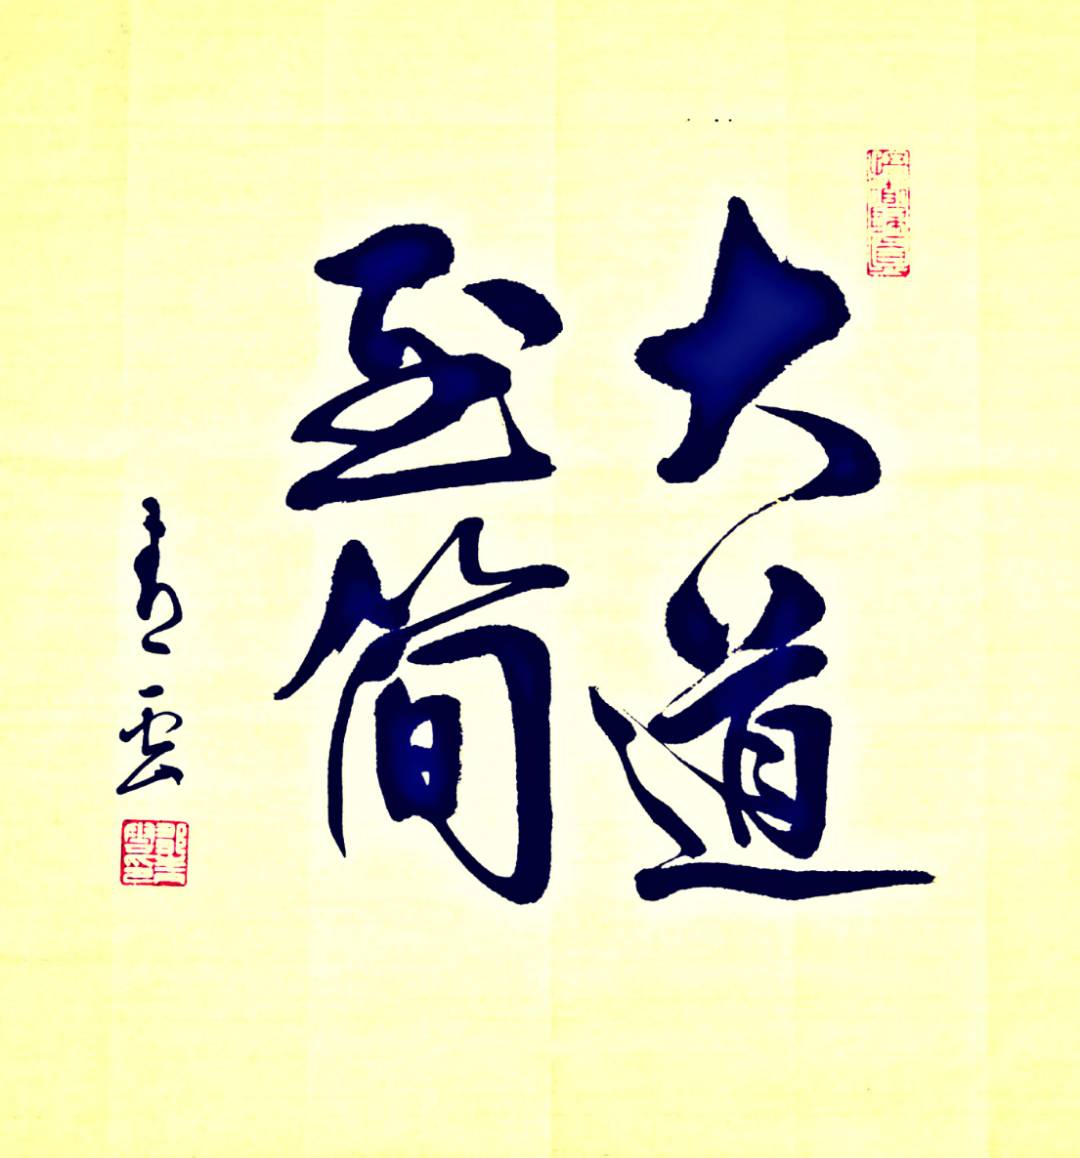 大道
至简
青云